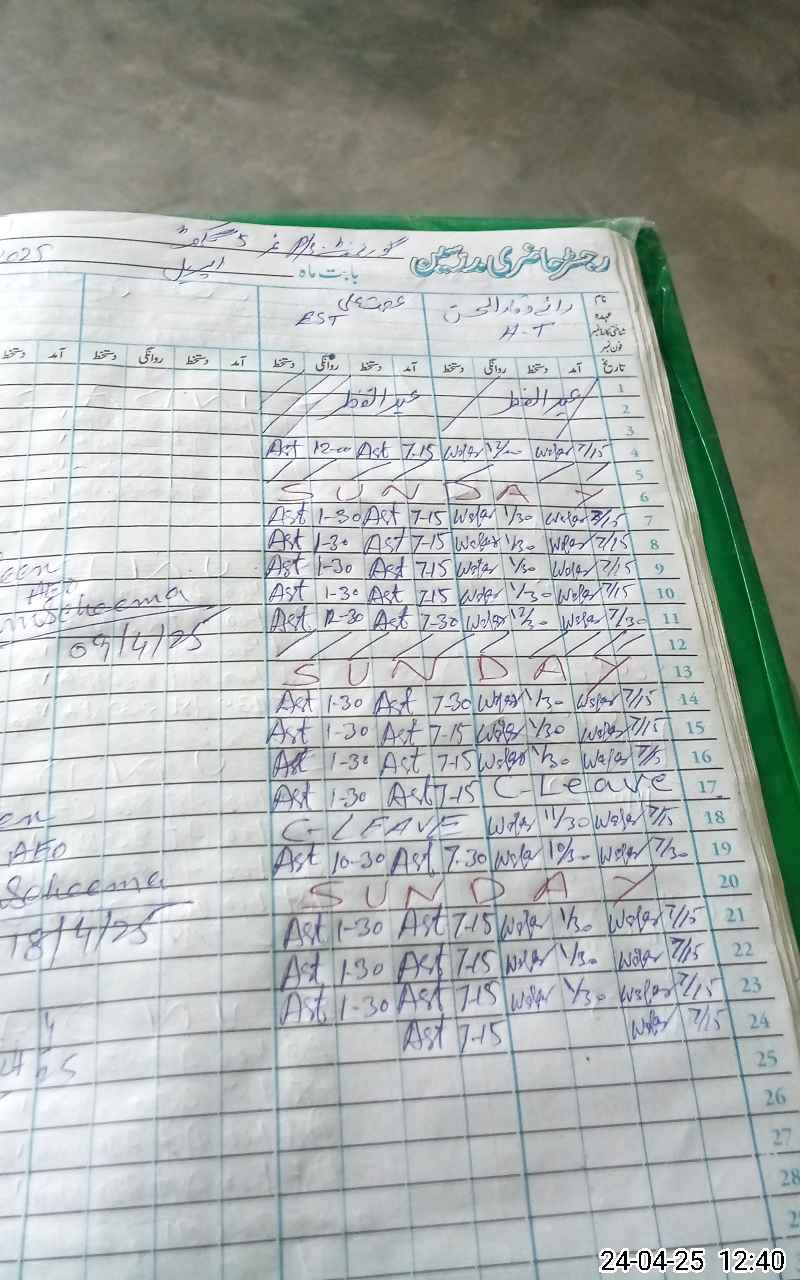 رجسٹر حاضری مدرسین
گورنمنٹ P/S نمبر 5
بابت ماہ اپریل 2025
نام
عہدہ
H-T
عصمت علی
EST
تاریخ آمد دستخط روانگی دستخط آمد دستخط روانگی دستخط آمد دستخط روانگی دستخط آمد دستخط
1
عید الفطر عید الفطر
2
3
Ast 12-00 Ast 7-15 Wafar 12/00 Wafar 7/15 4
5
SUNDAY 6
Ast 1-30 Ast 7-15 Wafar 1/30 Wafar 7/15 7
Ast 1-30 Ast 7-15 Wafar 1/30 Wafar 7/15 8
Ast 1-30 Ast 7-15 Wafar 1/30 Wafar 7/15 9
Ast 1-30 Ast 7-15 Wafar 1/30 Wafar 7/15 10
Ast 12-30 Ast 7-30 Wafar 12/30 Wafar 7/30 11
12
SUNDAY 13
Ast 1-30 Ast 7-30 Wafar 1/30 Wafar 7/15 14
Ast 1-30 Ast 7-15 Wafar 1/30 Wafar 7/15 15
Ast 1-30 Ast 7-15 Wafar 1/30 Wafar 7/15 16
Ast 1-30 Ast 7-15 C-Leave 17
C-LEAVE Wafar 11/30 Wafar 7/15 18
Ast 10-30 Ast 7-30 Wafar 10/30 Wafar 7/30 19
SUNDAY 20
Ast 1-30 Ast 7-15 Wafar 1/30 Wafar 7/15 21
Ast 1-30 Ast 7-15 Wafar 1/30 Wafar 7/15 22
Ast 1-30 Ast 7-15 Wafar 1/30 Wafar 7/15 23
Ast 7-15 Wafar 7/15 24
25
26
27
28
AEO
Scheema
09/4/25
AEO
Scheema
18/4/25
24-04-25 12:40